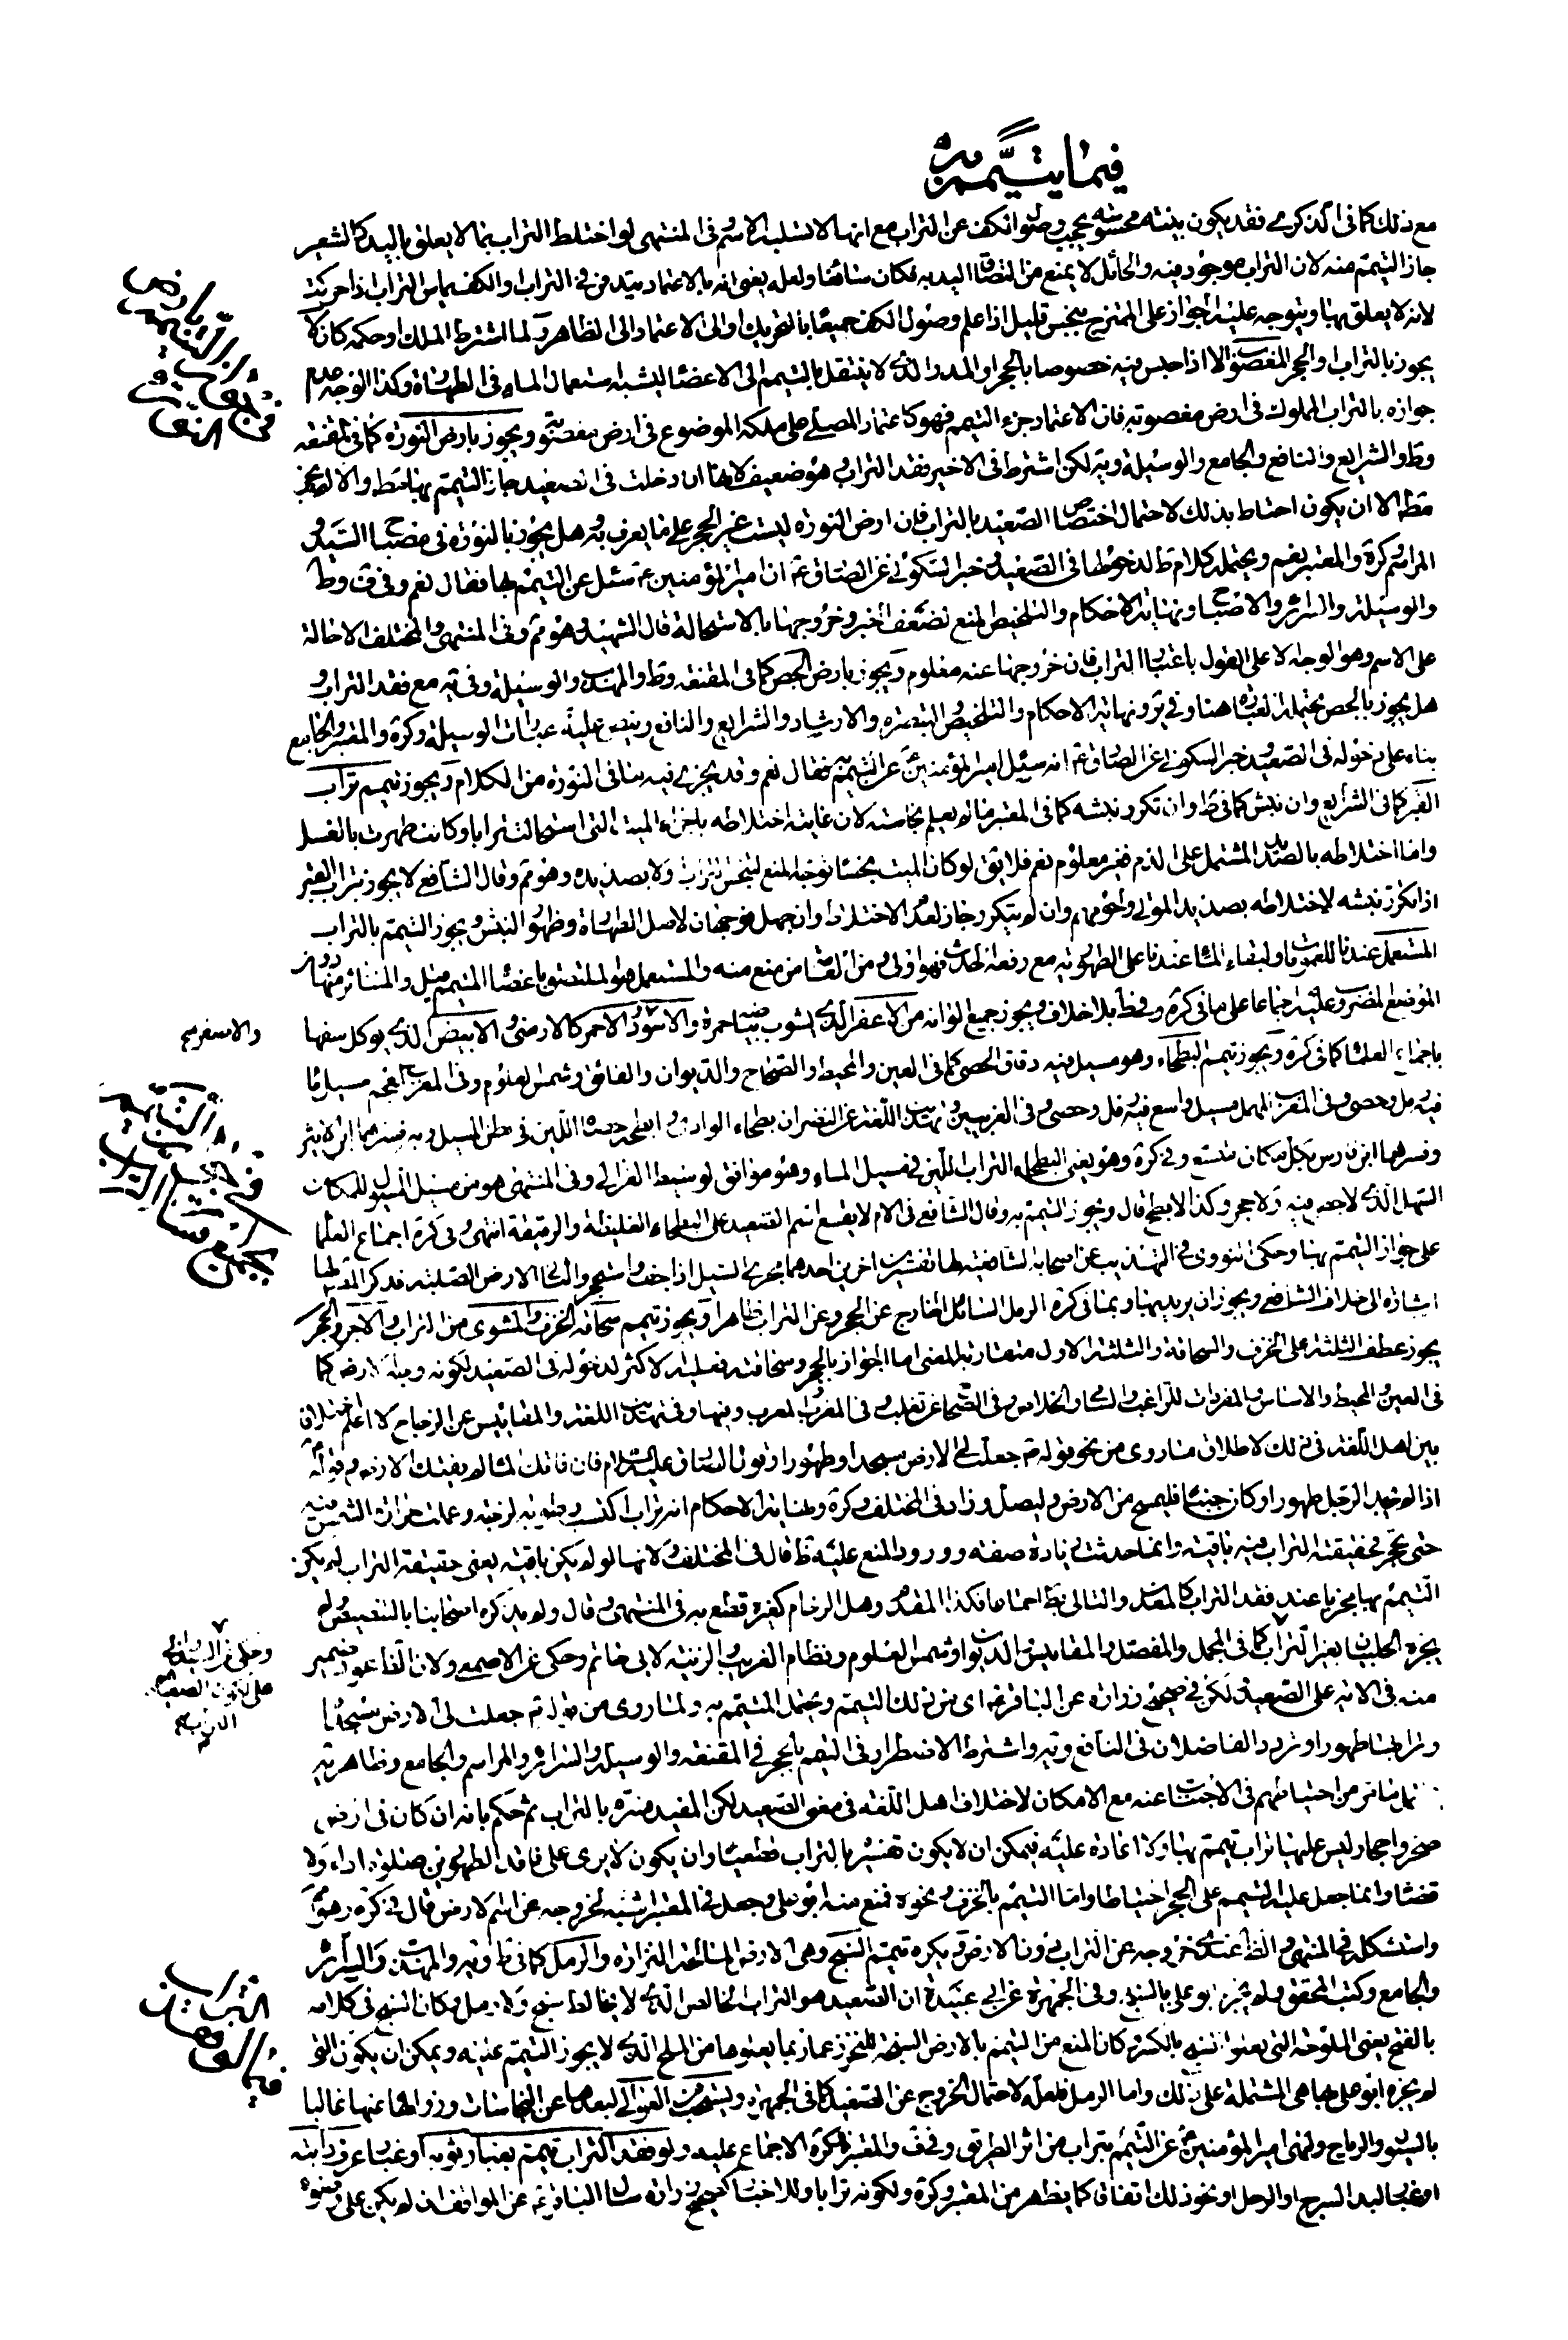 فيما يتيمم به
مع ذلك كما في التذكرة فقد يكون بينته محسوسة يحجب وصول الكف عن التراب مع انها لا تسلبه الاسم وفي المنتهى لو اختلط التراب بما لا يعلق باليد كالشعير
جاز التيمم منه لان التراب موجود فيه والحائل لا يمنع من التصاق اليد به فكان سائغا ولعله يعني انه بالاعتماد يندفن في التراب والكف يماس التراب اذا حركت
لانه لا يعلق بها ويتوجه عليه الجواز على الممتزج بنجس قليل اذا علم وصول الكف جميعا بالتحريك او الى الاعتماد الى الظاهر ولما اشترط الملك او حكمه كان لا
يجوز بالتراب او الحجر المغصوب الا اذا حبس فيه خصوصا بالحجر او المدر الذي لا ينتقل بالتيمم الى الاعضاء ليشبه استعمال الماء في الطهارة وكذا الوجه عدم
جوازه بالتراب المملوك في ارض مغصوبة فان الاعتماد جزء التيمم فهو كاعتماد المصلي على ملكه الموضوع في ارض مغصوبة ويجوز بارض النورة كما في المقنعة
وط والشرايع والنافع والجامع والوسيلة وية لكن اشترط في الاخير فقد التراب وهو ضعيف لانها ان دخلت في الصعيد جاز التيمم بها مط والا لم يجز
مط الا ان يكون احتاط بذلك لاحتمال اختصاص الصعيد بالتراب فان ارض النورة ليست غير الحجر على ما يعرف وهل يجوز بالنورة في مصباح السيد و
المراسم كرة والمعتبر نعم ويحتمله كلام ط لدخولها في الصعيد وخبر السكوني عن الصادق ع ان امير المؤمنين ع سئل عن التيمم بها فقال نعم وفي ف وط
والوسيلة والسرائر والاصباح ونهاية الاحكام والتلخيص المنع لضعف الخبر وخروجها بالاستحالة قال الشهيد وهو مم وفي المنتهى والمختلف الاحالة
على الاسم وهو الوجه لا على القول باعتبار التراب فان خروجها عنه معلوم ويجوز بارض الجص كما في المقنعة وط والمهذب والوسيلة وفي ية مع فقد التراب و
هل يجوز بالجص محتملة لعباره هنا وفي ير ونهاية الاحكام والتلخيص والتبصرة والارشاد والشرايع والنافع وينص عليه عبارات الوسيلة وكرة والمعتبر والجامع
بناء على دخوله في الصعيد وخبر السكوني عن الصادق ع انه سئل امير المؤمنين ع عن التيمم به فقال نعم وقد يجري فيه ما في النورة من الكلام ويجوز تيمم تراب
القبر كما في الشرايع وان نبش كما في ط وان تكرر نبشه كما في المعتبر ما لم يعلم نجاسته لان غاية اختلاطه باجزاء الميت التي استحالت ترابا وكانت طهرت بالغسل
واما اختلاطه بالصديد المشتمل على الدم فغير معلوم نعم فلا يق لو كان الميت نجسا توجه المنع لتنجس التراب ولا بصديده وهو مم وقال الشافعي لا يجوز بتراب القبر
اذا تكرر نبشه لاختلاطه بصديد الموتى ولحومهم وان لم يتكرر جاز لعدم الاختلاط وان جهل فوجهان لاصل الطهارة وظهور النبش ويجوز التيمم بالتراب
المستعمل عندنا للعمومات ولبقاء الماء عندنا على الطهورية مع رفعه الحدث فهو اولى من منع منه والمستعمل هو الملتصق باعضاء المتيمم مثل والمتناثر منها دون
الموضع المضروب عليه اجماعا على ما في كرة وفي ط بلا خلاف ويجوز جميع الوانه من الاعفر الذي يشوب بياضه حمرة والاسود والاحمر كالارمني والابيض الذي يوكل سفها
باجماع العلماء كما في كرة ويجوز تيمم البطحاء وهو مسيل فيه دقاق الحصى كما في العين والمحيط والصحاح والديوان والفائق وشمس العلوم وفي المعرب المعجم مسيل ماء
فيه رمل وحصى وفي المغرب المهمل مسيل واسع فيه رمل وحصى وفي الغريبين وتهذيب اللغة عن النضر ان بطحاء الوادي وابطحه حصاه اللين في بطن المسيل وبه فسرهما ابن الاثير
وفسرهما ابن فارس بكل مكان متسع وفي كرة وهو يعني البطحاء التراب اللين في مسيل الماء وهو موافق لوسيط الغزالي وفي المنتهى هو من مسيل السيول للمكان
السهل الذي لا حصى فيه ولا حجر وكذا الابطح قال ويجوز التيمم به وقال الشافعي في الام لا يقع اسم الصعيد على البطحاء الغليظة والرقيقة انتهى وفي كرة اجماع العلماء
على جواز التيمم بها وحكى النووي في التهذيب عن اصحابه الشافعية لها تفسيرين اخرين احدهما مجرى السيل اذا جف واستحجر والثاني الارض الصلبة فذكر المصنف لها
اشارة الى خلاف الشافعي ويجوز ان يريد بهما وبما في كرة الرمل السائل الخارج عن الحجر وعن التراب ظاهرا ويجوز تيمم سحاقة الخزف والمشوى من التراب والآجر والحجر
يجوز عطف الثلثة على الخزف والسحاقة والثلثة الاول متقاربة المعنى اما الجواز بالحجر وسحاقته فعليه الاكثر لدخوله في الصعيد لكونه وجه الارض كما
في العين والمحيط والاساس والمفردات للراغب والسامي والخلاص وفي الصحاح عن ثعلب وفي المغرب المعرب وفيهما وفي تهذيب اللغة والمقاييس عن الزجاج لا اعلم اختلافا
بين اهل اللغة في ذلك لاطلاق ما روي من نحو قوله ص جعلت لي الارض مسجدا وطهورا وقول الصادق عليه السلام فان فاتك الماء لم يفتك الارض وقوله
اذا لم يجد الرجل طهورا وكان جنبا فليمسح من الارض وليصل وزاد في المختلف وكرة ونهاية الاحكام انه تراب اكتسب رطوبة لزجة وعملت حرارة الشمس فيه
حتى تحجر فحقيقة التراب فيه باقية وانما حدثت زيادة صفة وورود المنع عليه ظ قال في المختلف ولانها لو لم يكن باقية يعني حقيقة التراب لم يكن
التيمم بها مجزيا عند فقد التراب كالمعدن والتالي بط اجماعا فكذا المقدم وهل الرخام كغيره قطع به في المنتهى قال ولم يذكره اصحابنا بالتنصيص ولم
يجزه الحلبيان بغير التراب كما في المجمل والمفصل والمقاييس الديوان وشمس العلوم ونظام الغريب والزينة لابي حاتم وحكى عن الاصمعي ولان القاعود ضمير
منه في الاية على الصعيد ولكن في صحيح زرارة عن الباقر ع اي من ذلك التيمم ويحتمل المتيمم به ولما روي من قوله ص جعلت لي الارض مسجدا
وترابها طهورا وتردد الفاضلان في النافع وية واشترط الاضطرار في التيمم بالحجر في المقنعة والوسيلة والسرائر والمراسم والجامع وظاهر ية
من احتياطهم في الاجتناب عنه مع الامكان لاختلاف اهل اللغة في معنى الصعيد لكن المفيد فسره بالتراب ثم حكم بانه ان كان في ارض
صخر واحجار ليس عليها تراب تيمم بها ولا اعادة عليه فيمكن ان لا يكون تفسيره بالتراب قطعيا وان يكون لا يرى على فاقد الطهورين صلوة اداء ولا
قضاء وانما جعل عليه التيمم على الحجر احتياطا واما التيمم بالخزف ونحوه فمنع منه ابو علي وجعل في المعتبر اشبه لخروجه عن اسم الارض قال في كرة وهو مم
واستشكل في المنتهى والظ عندي خروجه عن التراب دون الارض ويكره تيمم السبخ وهي الارض المالحة النزازة والرمل كما في ط وية والمهذب والسرائر
والجامع وكتب المحقق ولم يجز ابو علي بالسبخ وفي الجمهرة عن ابي عبيدة ان الصعيد هو التراب الخالص الذي لا يخالطه سبخ ولا رمل وكان السبخ في كلامه
بالفتح يعني الملوحة التي يعلوا السبخ بالكسر وكان المنع من التيمم بالارض السبخة للتحرز عما ربما يعلوها من الملح الذي لا يجوز التيمم عليه ويمكن ان يكون التي
لم يجزه ابو علي بها هي المشتملة على ذلك واما الرمل فلعله لاحتمال الخروج عن الصعيد كما في الجمهرة ويستحب من العوالي لبعدها عن النجاسات وزوالها عنها غالبا
بالسيول والرياح ولنهى امير المؤمنين ع عن التيمم بتراب من اثر الطريق وفي ف والمعتبر وكرة الاجماع عليه ولو فقد التراب تيمم بغبار ثوبه او غبار عرف دابته
او غبار لبد السرج او الرحل او نحو ذلك اتفاقا كما يظهر من المعتبر وكرة ولكونه ترابا وللاخبار كصحيح زرارة سال الباقر ع عن المواقف ان لم يكن على وضوء